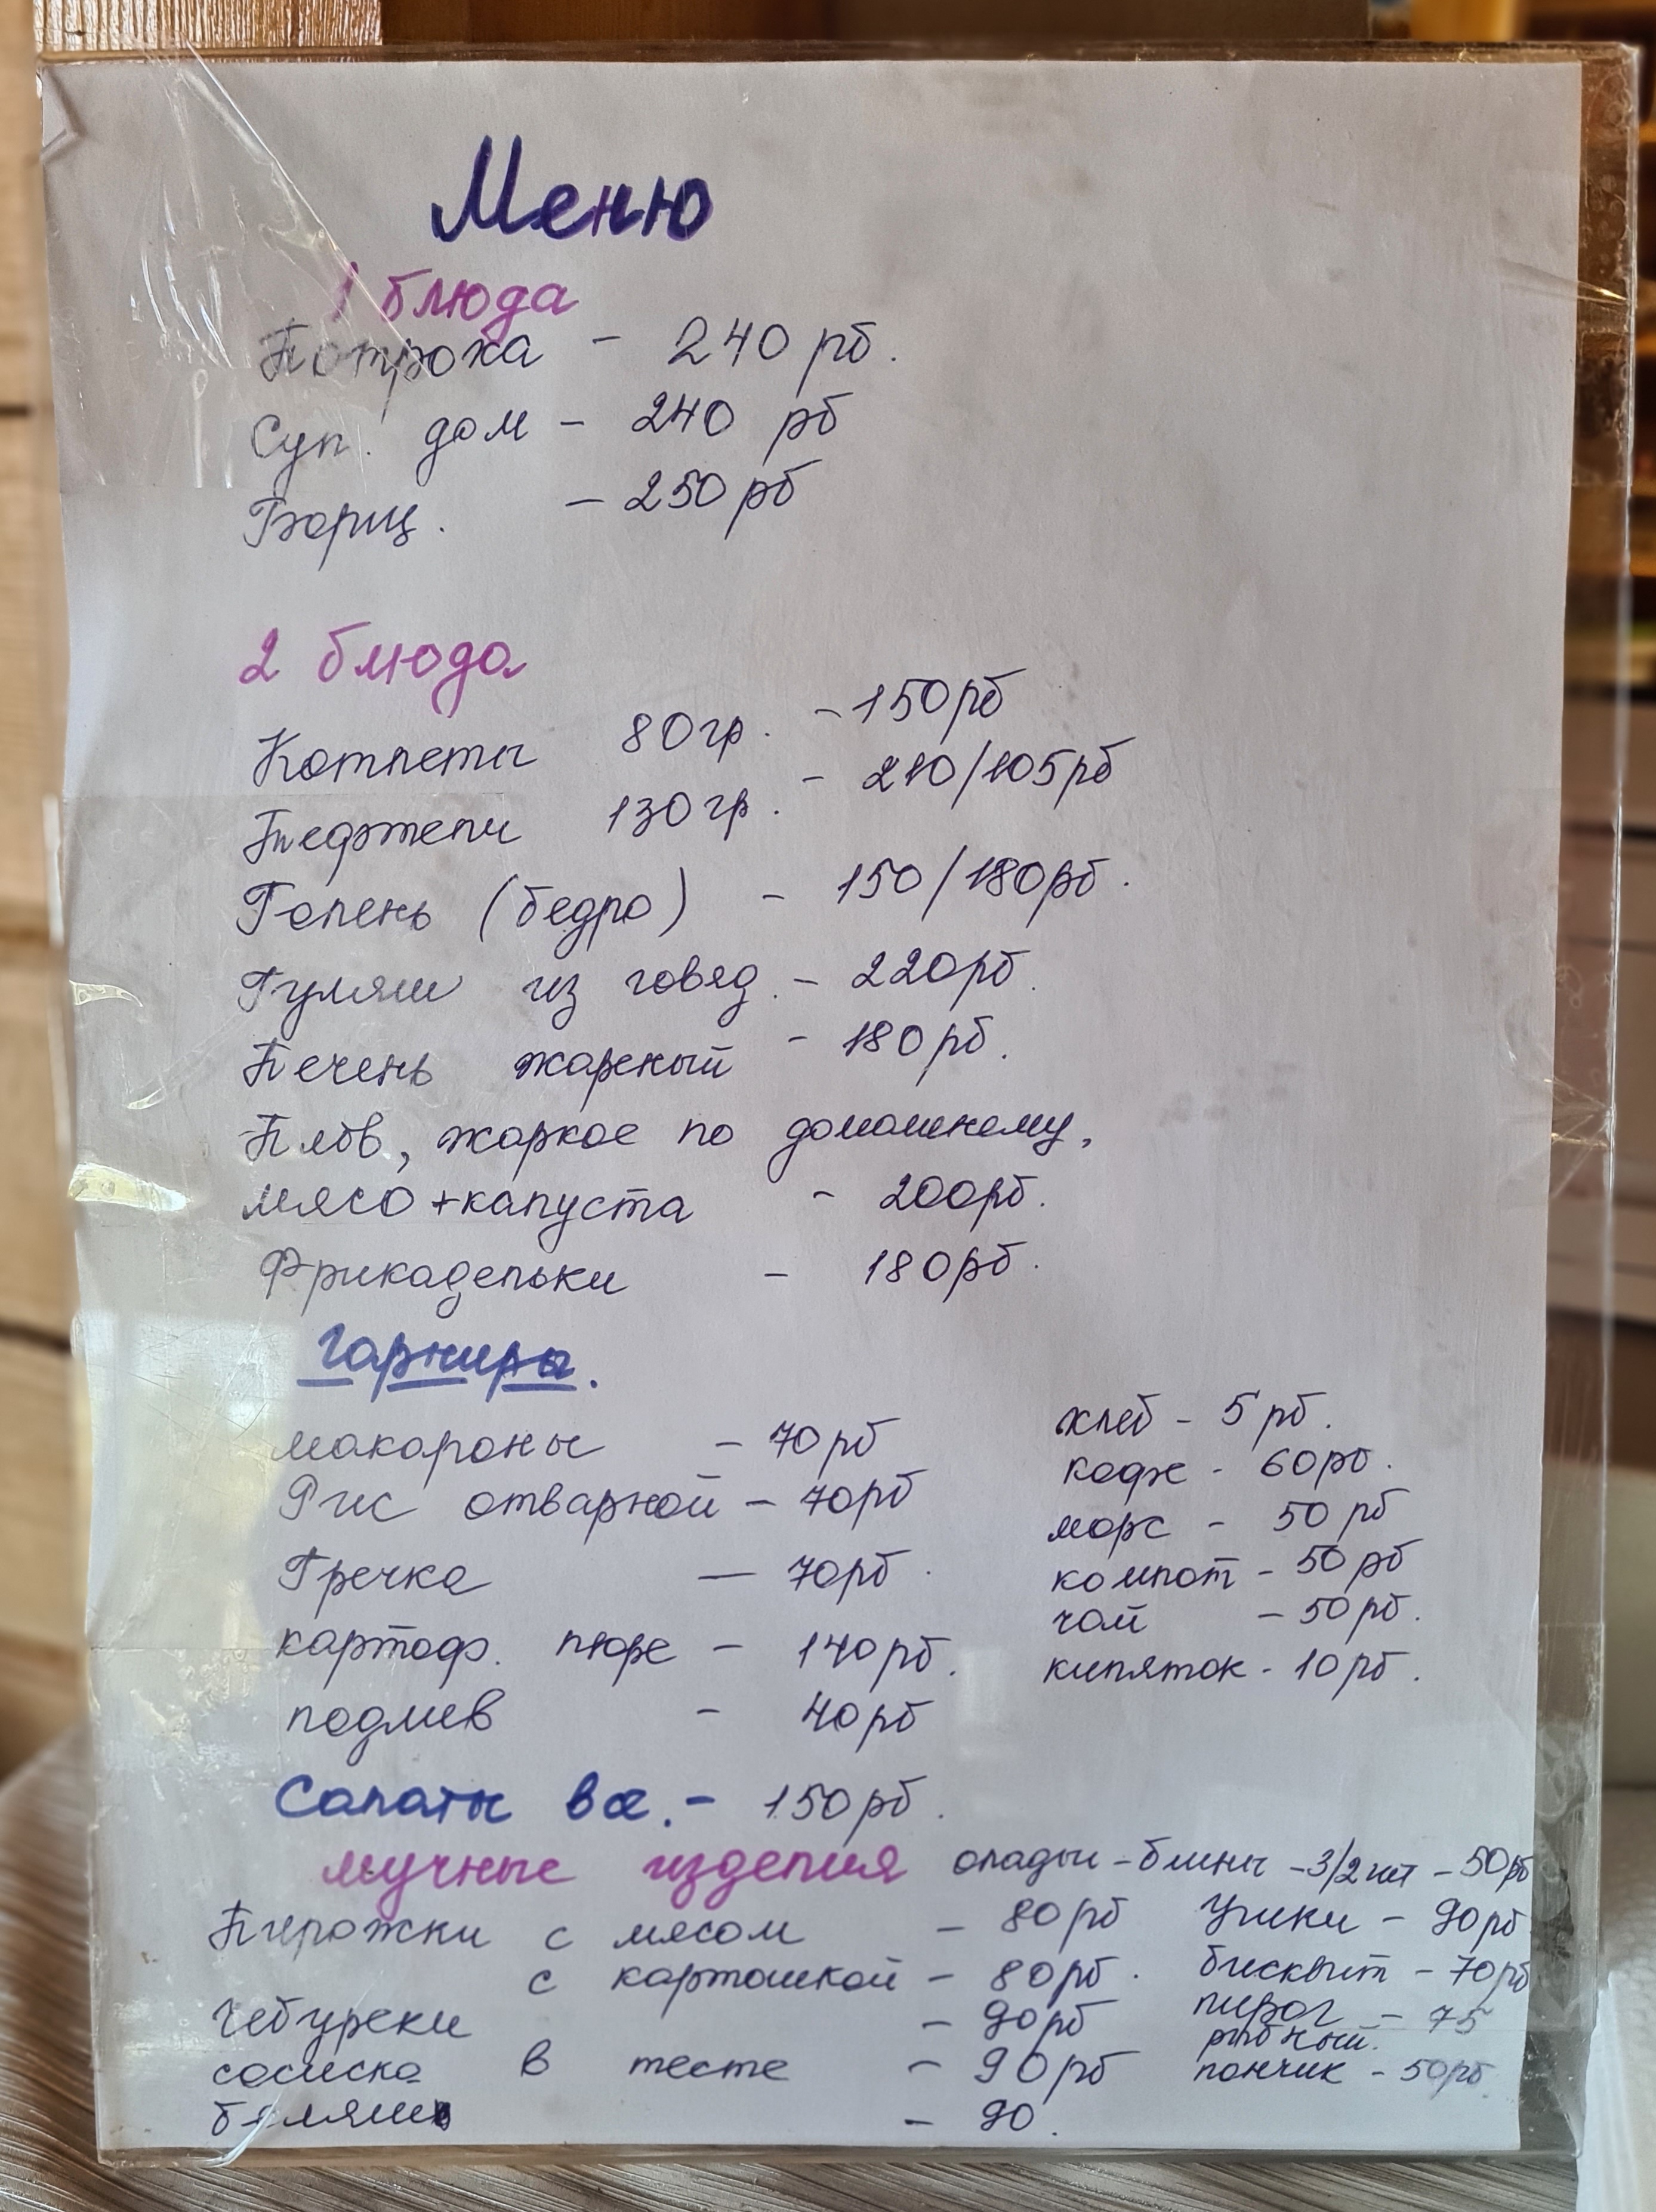 Меню
1 блюда
Потроха - 240 рб.
Суп. дом - 240 рб
Борщ. - 250 рб
2 блюда
Котлеты 80гр. - 150рб
Тефтели 130гр. - 210/105рб
Голень (бедро) - 150/180рб.
Гуляш из говяд. - 220рб.
Печень жареный - 180рб.
Плов, жаркое по домашнему,
мясо+капуста - 200рб.
Фрикадельки - 180рб.
Гарниры.
макароны - 70рб
Рис отварной - 70рб
Гречка - 70рб.
картоф. пюре - 140рб.
подлив - 40рб
хлеб - 5рб.
кофе - 60рб.
морс - 50рб
компот - 50рб
чай - 50рб.
кипяток - 10рб.
Салаты все. - 150рб.
мучные изделия
оладьи - блины - 3/2шт - 50рб
Пирожки с мясом - 80рб
с картошкой - 80рб.
Чебуреки - 90рб
сосиска в тесте - 90рб
беляшь - 90.
Ушки - 90рб
бисквит - 70рб
пирог - 75
рыбный.
пончик - 50рб.